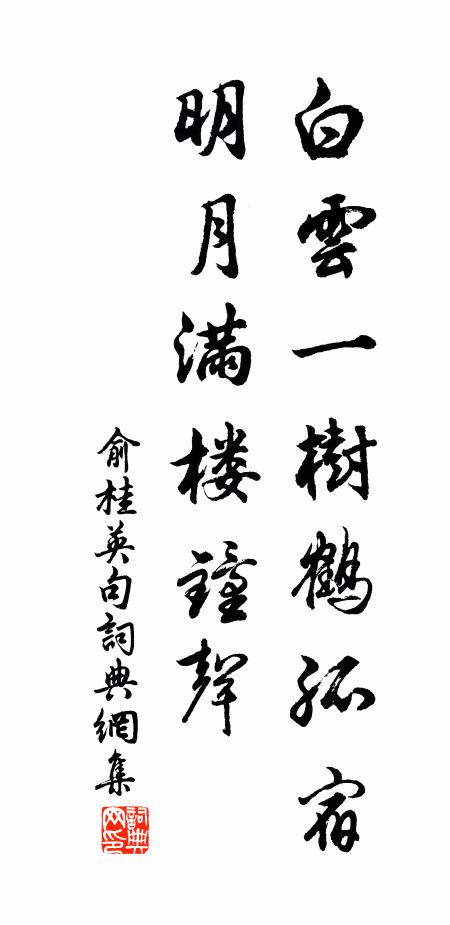 白雲一樹鶴孤宿
明月滿楼鐘聲
俞桂英句詞典網集
詞典网印